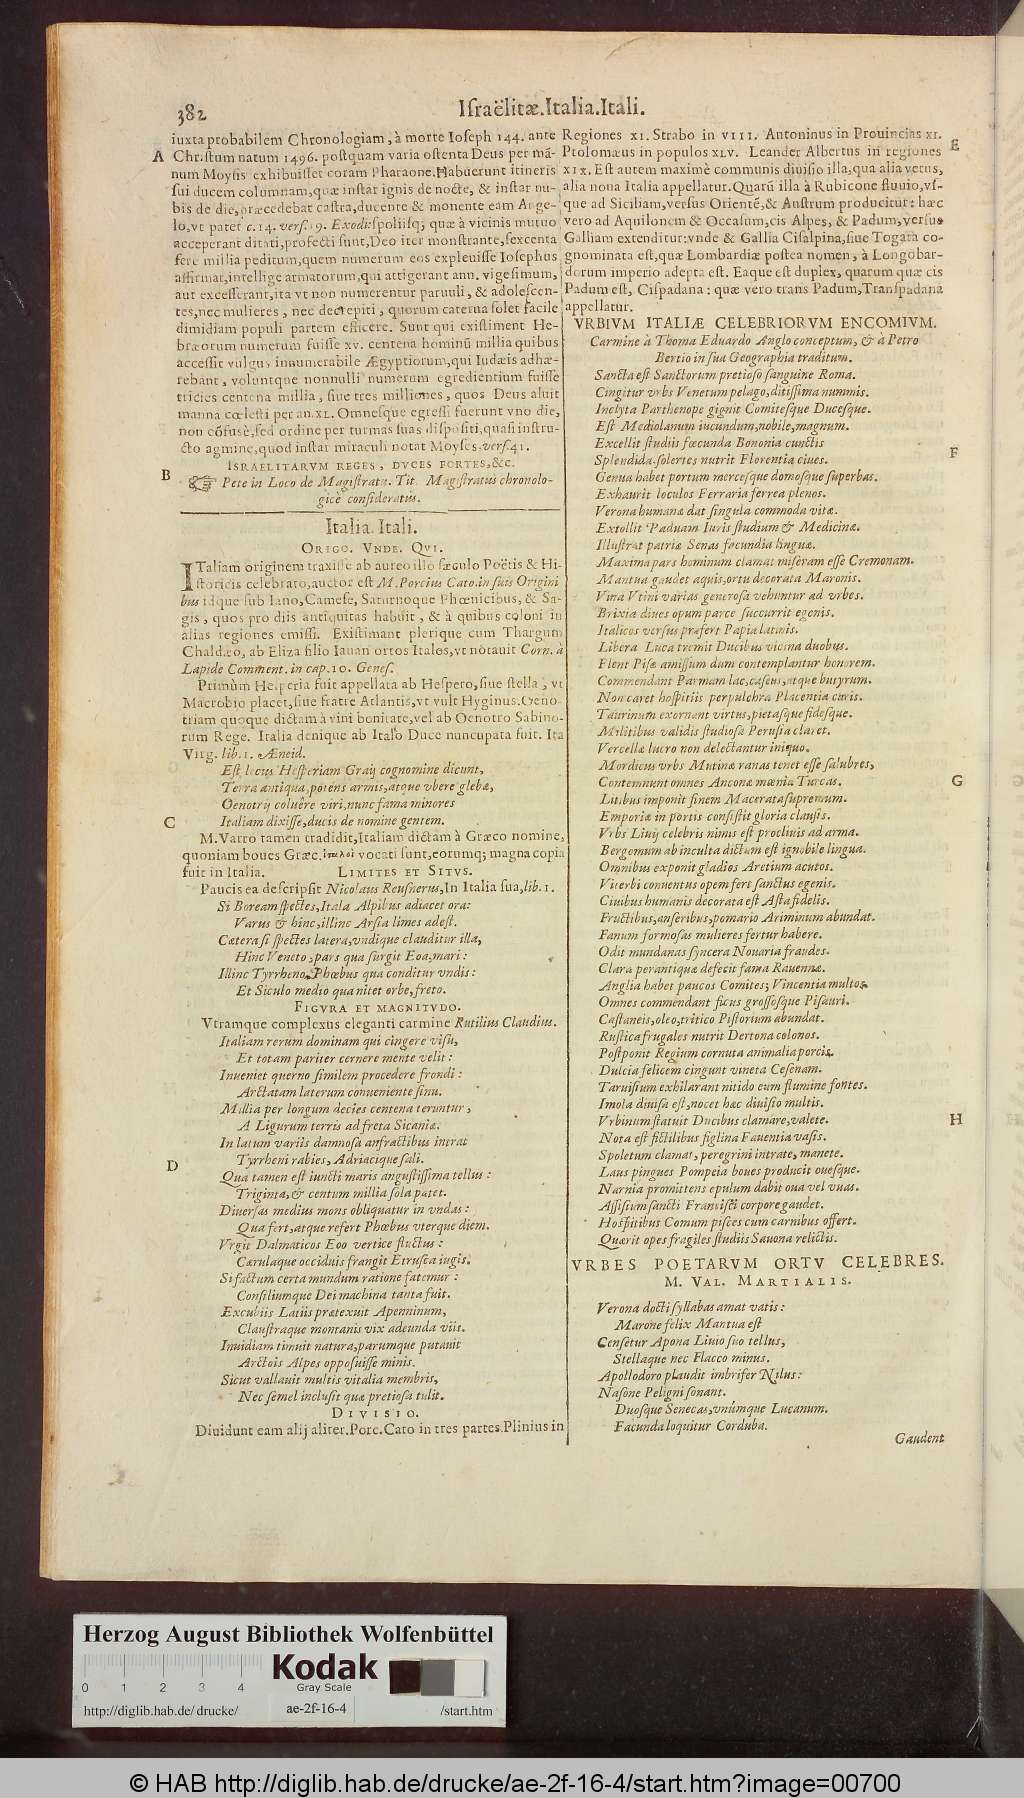 382
Iſraëlitæ.Italia.Itali.
iuxta probabilem Chronologiam, à morte Ioſeph 144. ante
A
Chriſtum natum 1496. poſtquam varia oſtenta Deus per mã-
num Moyſis exhibuiſſet coram Pharaone. Habuerunt itineris
ſui ducem columnam, quæ inſtar ignis de nocte, & inſtar nu-
bis de die, præcedebat caſtra, ducente & monente eam Ange-
lo, vt patet c.14. verſ.19. Exodi: ſpoliiſq; quæ à vicinis mutuo
acceperant ditati, profecti ſunt, Deo iter monſtrante, ſexcenta
fere millia peditum, quem numerum eos expleuiſſe Ioſephus
affirmat, intellige armatorum, qui attigerant ann. vigeſimum,
aut exceſſerant, ita vt non numerentur paruuli, & adoleſcen-
tes, nec mulieres, nec decrepiti, quorum caterua ſolet facile
dimidiam populi partem efficere. Sunt qui exiſtiment He-
bræorum numerum fuiſſe xv. centena hominũ millia quibus
acceſſit vulgus innumerabile Ægyptiorum, qui Iudæis adhæ-
rebant, voluntque nonnulli numerum egredientium fuiſſe
tricies centena millia, ſiue tres milliones, quos Deus aluit
manna cœleſti per an. XL. Omneſque egreſſi fuerunt vno die,
non cõfuſè, ſed ordine per turmas ſuas diſpoſiti, quaſi inſtru-
cto agmine, quod inſtar miraculi notat Moyſes. verſ.41.
ISRAELITARVM REGES, DVCES FORTES, &c.
B
☞ Pete in Loco de Magiſtratu. Tit. Magiſtratus chronolo-
gicè conſideratus.
Italia. Itali.
ORIGO. VNDE. QVI.
ITaliam originem traxiſſe ab aureo illo ſæculo Poëtis & Hi-
ſtoricis celebrato, auctor eſt M. Porcius Cato. in ſuis Origini
bus idque ſub Iano, Cameſe, Saturnoque Phœnicibus, & Sa-
gis, quos pro diis antiquitas habuit, & à quibus coloni in
alias regiones emiſſi. Exiſtimant plerique cum Thargum
Chaldæo, ab Eliza filio Iauan ortos Italos, vt notauit Corn. à
Lapide Comment. in cap.10. Geneſ.
Primùm Heſperia fuit appellata ab Heſpero, ſiue ſtella, vt
Macrobio placet, ſiue fratre Atlantis, vt vult Hyginus. Oeno-
triam quoque dictam à vini bonitate, vel ab Oenotro Sabino-
rum Rege. Italia denique ab Italo Duce nuncupata fuit. Ita
Virg. lib.1. Æneid.
Eſt locus Heſperiam Graij cognomine dicunt,
Terra antiqua, potens armis, atque vbere glebæ,
Oenotrij coluêre viri, nunc fama minores
Italiam dixiſſe, ducis de nomine gentem.
C
M. Varro tamen tradidit, Italiam dictam à Græco nomine,
quoniam boues Græc. ἰταλοὶ vocati ſunt, eorumq; magna copia
fuit in Italia.
LIMITES ET SITVS.
Paucis ea deſcripſit Nicolaus Reuſnerus, In Italia ſua, lib.1.
Si Boream ſpectes, Itala Alpibus adiacet ora:
Varus & hinc, illinc Arſia limes adeſt.
Cætera ſi ſpectes latera, vndique clauditur illa,
Hinc Veneto, pars qua ſurgit Eoa, mari:
Illinc Tyrrheno, Phœbus qua conditur vndis:
Et Siculo medio qua nitet orbe, freto.
FIGVRA ET MAGNITVDO.
Vtramque complexus eleganti carmine Rutilius Claudius.
Italiam rerum dominam qui cingere viſu,
Et totam pariter cernere mente velit:
Inueniet querno ſimilem procedere frondi:
Arctatam laterum conueniente ſinu.
Millia per longum decies centena teruntur,
A Ligurum terris ad freta Sicaniæ.
In latum variis damnoſa anfractibus intrat
Tyrrheni rabies, Adriacique ſali.
D
Qua tamen eſt iuncti maris anguſtiſſima tellus:
Triginta, & centum millia ſola patet.
Diuerſas medius mons obliquatur in vndas:
Qua fert, atque refert Phœbus vterque diem.
Vrgit Dalmaticos Eoo vertice fluctus:
Cærulaque occiduis frangit Etruſca iugis.
Si factum certa mundum ratione fatemur:
Conſiliumque Dei machina tanta fuit.
Excubiis Latiis prætexuit Apenninum,
Clauſtraque montanis vix adeunda viis.
Inuidiam timuit natura, parumque putauit
Arctois Alpes oppoſuiſſe minis.
Sicut vallauit multis vitalia membris,
Nec ſemel incluſit quæ pretioſa tulit.
DIVISIO.
Diuidunt eam alij aliter. Porc. Cato in tres partes. Plinius in
Regiones XI. Strabo in VIII. Antoninus in Prouincias XI.
E
Ptolomæus in populos XLV. Leander Albertus in regiones
XIX. Eſt autem maximè communis diuiſio illa, qua alia vetus,
alia noua Italia appellatur. Quarũ illa à Rubicone fluuio, vſ-
que ad Siciliam, verſus Orientẽ, & Auſtrum producitur: hæc
vero ad Aquilonem & Occaſum, cis Alpes, & Padum, verſus
Galliam extenditur: vnde & Gallia Ciſalpina, ſiue Togata co-
gnominata eſt, quæ Lombardiæ poſtea nomen, à Longobar-
dorum imperio adepta eſt. Eaque eſt duplex, quarum quæ cis
Padum eſt, Ciſpadana: quæ vero trans Padum, Tranſpadana
appellatur.
VRBIVM ITALIÆ CELEBRIORVM ENCOMIVM.
Carmine à Thoma Eduardo Anglo conceptum, & à Petro
Bertio in ſua Geographia traditum.
Sancta eſt Sanctorum pretioſo ſanguine Roma.
Cingitur vrbs Venetum pelago, ditiſſima nummis.
Inclyta Parthenope gignit Comiteſque Duceſque.
Eſt Mediolanum iucundum, nobile, magnum.
Excellit ſtudiis fœcunda Bononia cunctis
F
Splendida. ſolertes nutrit Florentia ciues.
Genua habet portum merceſque domoſque ſuperbas.
Exhaurit loculos Ferraria ferrea plenos.
Verona humanæ dat ſingula commoda vitæ.
Extollit Paduam Iuris ſtudium & Medicinæ.
Illuſtrat patriæ Senas facundia linguæ.
Maxima pars hominum clamat miſeram eſſe Cremonam.
Mantua gaudet aquis, ortu decorata Maronis.
Vina Vtini varias generoſa vehuntur ad vrbes.
Brixia diues opum parce ſuccurrit egenis.
Italicos verſus præfert Papia latinis.
Libera Luca tremit Ducibus vicina duobus.
Flent Piſæ amiſſum dum contemplantur honorem.
Commendant Parmam lac, caſeus, atque butyrum.
Non caret hoſpitiis perpulchra Placentia caris.
Taurinum exornant virtus, pietaſque fideſque.
Militibus validis ſtudioſa Peruſia claret.
Vercellæ lucro non delectantur iniquo.
Mordicus vrbs Mutinæ ranas tenet eſſe ſalubres,
G
Contemnunt omnes Anconæ mœnia Turcas.
Litibus imponit finem Macerata ſupremum.
Emporiæ in portis conſiſtit gloria clauſis.
Vrbs Liuij celebris nimis eſt procliuis ad arma.
Bergomum ab inculta dictum eſt ignobile lingua.
Omnibus exponit gladios Aretium acutos.
Viterbi conuentus opem fert ſanctus egenis.
Ciuibus humanis decorata eſt Aſta fidelis.
Fructibus, anſeribus, pomario Ariminum abundat.
Fanum formoſas mulieres fertur habere.
Odit mundanas ſyncera Nouaria fraudes.
Clara perantiquæ defecit fama Rauennæ.
Anglia habet paucos Comites; Vincentia multos.
Omnes commendant ficus groſſoſque Piſauri.
Caſtaneis, oleo, tritico Piſtorium abundat.
Ruſtica frugales nutrit Dertona colonos.
Poſtponit Regium cornuta animalia porcis.
Dulcia felicem cingunt vineta Ceſenam.
Taruiſium exhilarant nitido cum flumine fontes.
Imola diuiſa eſt, nocet hæc diuiſio multis.
H
Vrbinum ſtatuit Ducibus clamare, valete.
Nota eſt fictilibus figlina Fauentia vaſis.
Spoletum clamat, peregrini intrate, manete.
Laus pingues Pompeia boues producit oueſque.
Narnia promittens epulum dabit oua vel vuas.
Aſſiſium ſancti Franciſci corpore gaudet.
Hoſpitibus Comum piſces cum carnibus offert.
Quærit opes fragiles ſtudiis Sauona relictis.
VRBES POETARVM ORTV CELEBRES.
M. VAL. MARTIALIS.
Verona docti ſyllabas amat vatis:
Marone felix Mantua eſt
Cenſetur Apona Liuio ſuo tellus,
Stellaque nec Flacco minus.
Apollodoro plaudit imbrifer Nilus:
Naſone Peligni ſonant.
Duoſque Senecas, vnúmque Lucanum.
Facunda loquitur Corduba.
Gaudent
Herzog August Bibliothek Wolfenbüttel
0 1 2 3 4
Kodak
Gray Scale
http://diglib.hab.de/ drucke/
ae-2f-16-4
/start.htm
© HAB http://diglib.hab.de/drucke/ae-2f-16-4/start.htm?image=00700